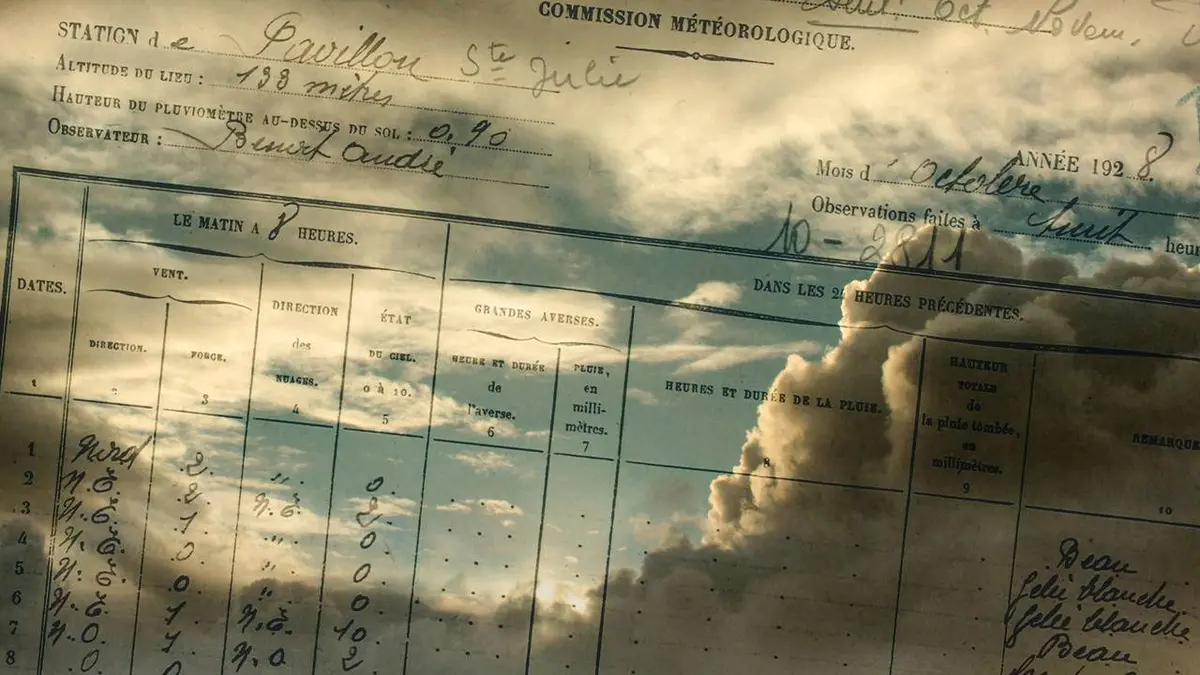 COMMISSION MÉTÉOROLOGIQUE.
Oct. Novem.
STATION de Pavillon Ste Julie
ALTITUDE DU LIEU : 138 mètres
HAUTEUR DU PLUVIOMÈTRE AU-DESSUS DU SOL : 0,90
OBSERVATEUR : Benoit André
ANNÉE 1928.
Mois d' Octobre
Observations faites à huit heur
10-2811
LE MATIN A 8 HEURES.
DANS LES 24 HEURES PRÉCÉDENTES.
DATES.
VENT.
DIRECTION des NUAGES.
ÉTAT DU CIEL. 0 à 10.
GRANDES AVERSES.
HEURES ET DURÉE DE LA PLUIE.
HAUTEUR TOTALE de la pluie tombée, en millimètres.
REMARQUE
DIRECTION.
FORCE.
HEURE ET DURÉE de l'averse.
PLUIE, en milli- mètres.
1 2 3 4 5 6 7 8 9 10
1 Nord 2 " 0
2 N.E. 2 N.E. 2
3 N.E. 1 " 0
4 N.E. 0 " 0
5 N.E. 0 " 0
6 N.E. 1 N.E. 10
7 N.O. 1 N.O. 2
8 O. 0
Beau
Gelée blanche
Gelée blanche
Beau